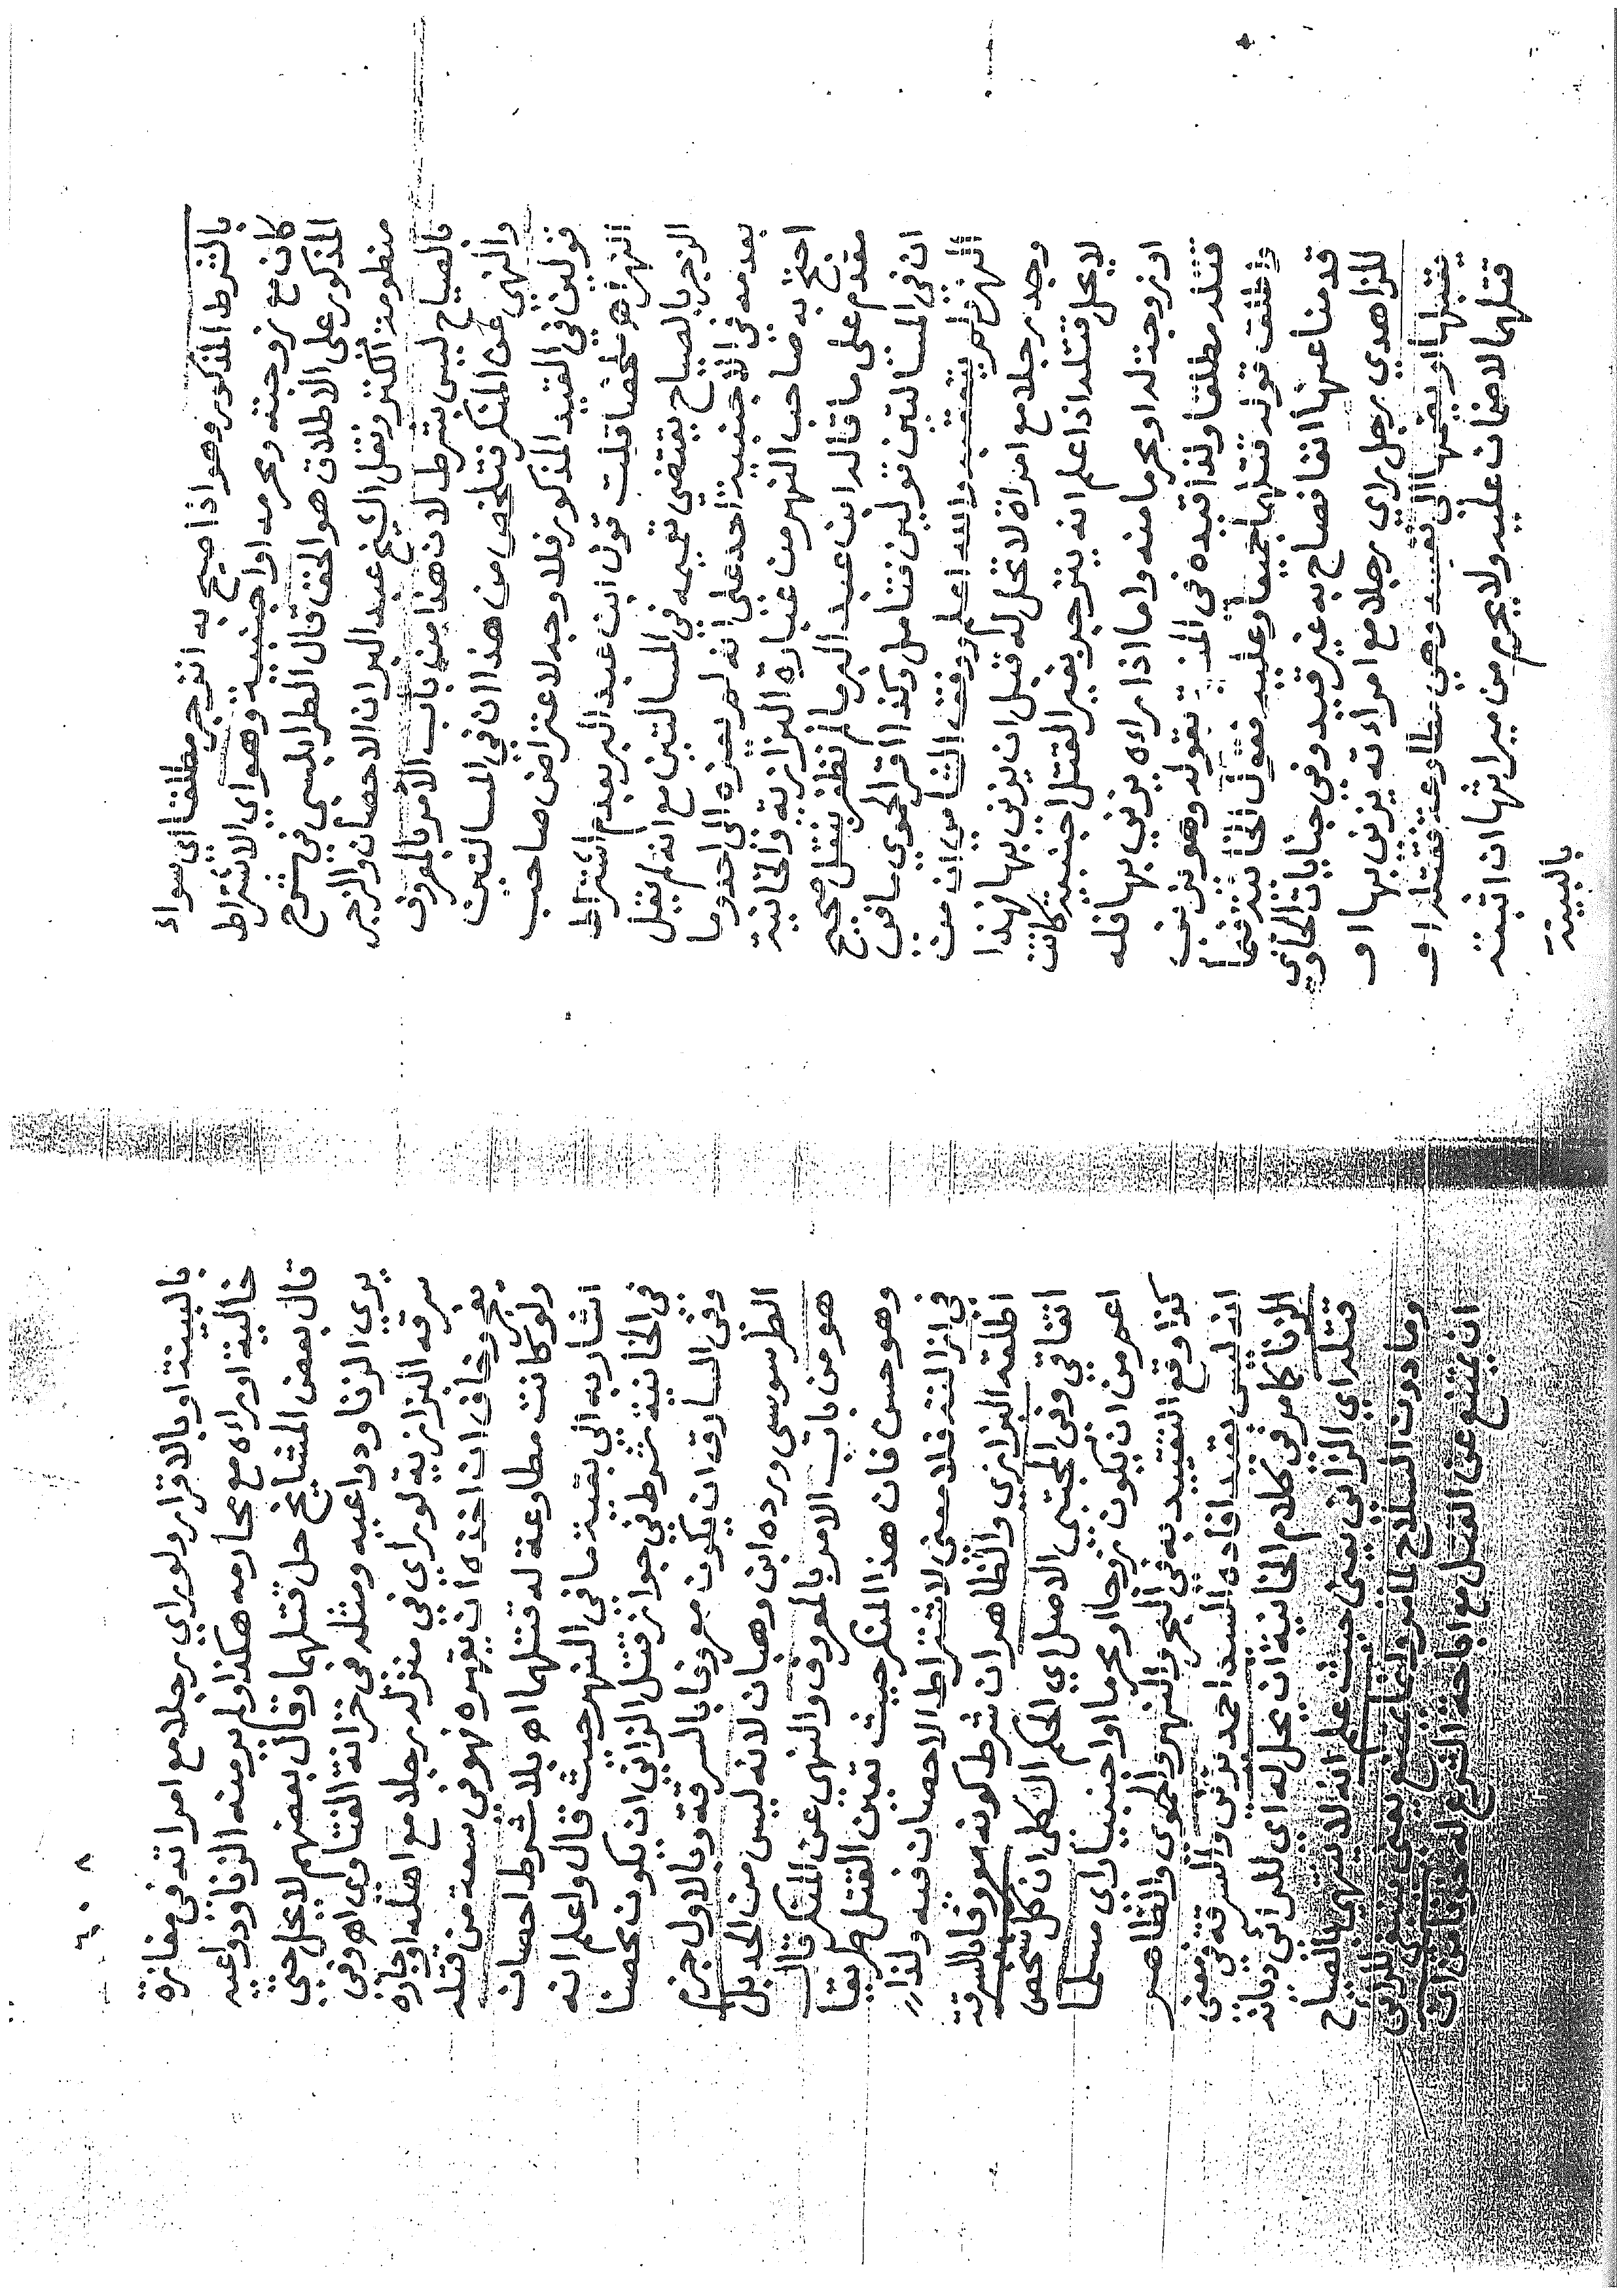 بالشرط المذكور وهو اذا صيح به انزجر مطلقا اي سواء
كان مع زوجته ومحرمه او اجنبية وهو اي الاشتراط
المذكور على الاطلاق هو الحق قال الطرابلسي في شرح
منظومة الكنز ونقل الشيخ عبد البر ان الاحصان والزجر
بالصياح ليس بشرط لان هذا من باب الامر بالمعروف
والنهي عن المنكر فتلخص من هذا ان في المسالتين
قولين في القيد المذكور فلا وجه لاعتراض صاحب
النهر اهـ ملخصا قلت قول ابن عبد البر بعدم اشتراط
الزجر بالصياح يقتضي تعميمه في المسالتين مع انه لم يقل
بعدمه في الاجنبية احد على انه لم يعزه الى احد وما
احتج به صاحب النهر من عبارة البزازية والخانية
مقدم على ما قاله ابن عبد البر ما لم نظفر بنقل صحيح
ان في المسالتين قولين فتامل وكذا اقر الحموي ما في
النهر ولم يتعقبه والله اعلم ووفق الشامي ان من
وجد رجلا مع امراة لا تحل له قبل ان يزني بها فهذا
لا يحل قتله اذا علم انه ينزجر بغير القتل اجنبية كانت
او زوجة له او محرما منه واما اذا راه يزني بها فله
قتله مطلقا ولذا قيده في المنـ بقوله وهو يزني
واطلق قوله قتلهما جميعا وعليه فقول الخانية ثما
قدمنا عنها انفا فصاح به غير قيد وفي جنايات الحاوي
للزاهدي رجل راي رجلا مع امراءته يزني بها او
يقبلها او يضمها الى نفسه وهي مطاوعة فقتله او
قتلهما لا ضمان عليه ولا يحرم من ميراثها ان اثبته
بالبينة
٦٠٨
بالبينة او بالاقرار ولو راي رجلا مع امراته في مفازة
خالية او راه مع محارمه هكذا ولم ير منه الزنا ودواعيه
قال بعض المشايخ حل قتلهما وقال بعضهم لا يحل حتى
يري الزنا ودواعيه ومثله في خزانة الفتاوى اهـ وفي
سرقه البزازيه لو راي في منزله رجلا مع اهله او جاره
يفجر وخاف ان اخذه ان يقهره فهو في سعة من قتله
ولو كانت مطاوعة له قتلهما اهـ بلا شرط احصان
اشار به الى بقية ما في النهر حيث قال واعلم انه
في الخانية شرط في جواز قتل الزاني ان يكون محصنا
وفي السارق ان يكون معروفا بالسرقة وبالاول جزم
الطرسوسي ورده ابن وهبان لانه ليس من الحد بل
هو من باب الامر بالمعروف والنهي عن المنكر قال
وهو حسن فان هذا المنكر حيث تعين القتل طريقا
في ازالته فلا معنى لاشتراط الاحصان فيه ولذا
اطلقه البزازي والظاهر ان شرط كونه معروفا بالسرقة
اتفاقي وفي المجتبى الاصل اي الحكم الكلي ان كل شخص
اعم من ان يكون زوجا او محرما او اجنبيا راى مسلما
كذا وقع التقييد به في البحر والنهر والحموي والظاهر
انه ليس بقيد افاده السند احمد يزني والسرقة في معنى
الزنا كما مر في كلام الخانية ان يحل له اي للرائي ديانة
قتله اي الزاني يعني حيث علم انه لا ينتهي بالصياح
وما دون السلاح كما مر وانما يمتنع يعني يسوغ للرائي
ان يمتنع عن القتل مع اباحة الشرع له خوفا من ان